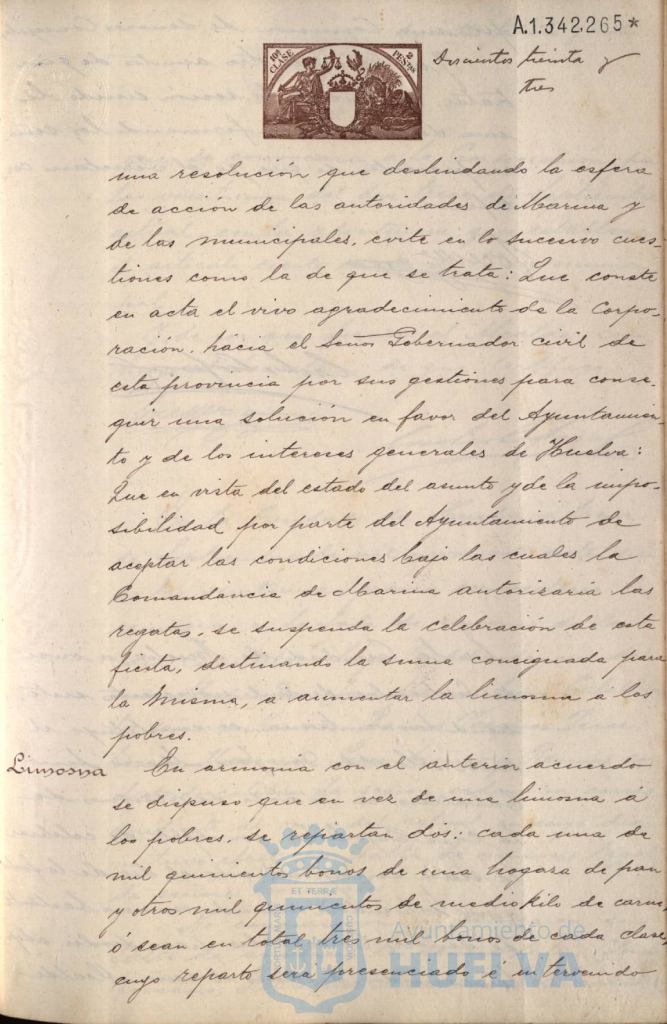 A.1.342.265*
10ª CLASE
2 PESTAS
Doscientos treinta y
tres
una resolución que deslindando la esfera
de acción de las autoridades de Marina y
de las municipales, evite en lo sucesivo cues-
tiones como la de que se trata: Que conste
en acta el vivo agradecimiento de la Corpo-
ración, hácia el Señor Gobernador civil de
esta provincia por sus gestiones para conse-
guir una solución en favor del Ayuntamien-
to y de los intereses generales de Huelva:
Que en vista del estado del asunto y de la impo-
sibilidad por parte del Ayuntamiento de
aceptar las condiciones bajo las cuales la
Comandáncia de Marina autorizaria las
regatas, se suspenda la celebración de esta
fiesta, destinando la suma consignada para
la misma, a aumentar la limosna á los
pobres.
Limosna
En armonia con el anterior acuerdo
se dispuso que en vez de una limosna á
los pobres, se repartan dós: cada una de
mil quinientos bonos de una hogaza de pan
y otros mil quinientos de medio kilo de carne,
ó sean en total tres mil bonos de cada clase,
cuyo reparto será presenciado é intervenido
ET TERRÆ
Ayuntamiento de
HUELVA